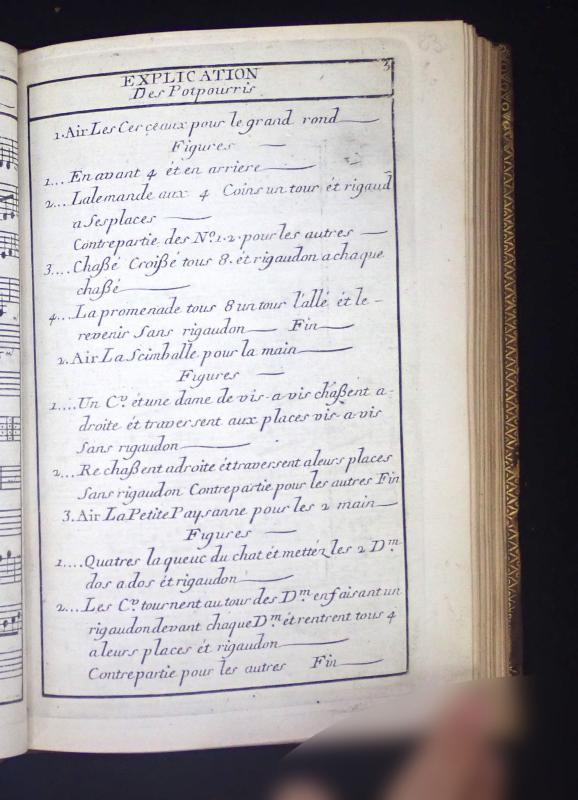 83
3
EXPLICATION
Des Potpourris
1. Air Les Cerçeaux pour le grand rond
Figures
1... En avant 4 ét en arriere
2... Lalemande aux 4 Coins un tour ét rigaud
a Ses places
Contrepartie des No. 1. 2. pour les autres
3.... Chaßé Croißé tous 8. ét rigaudon a chaque
chaßé
4... La promenade tous 8 un tour l'allé ét le-
revenir Sans rigaudon Fin
2. Air La Scimballe pour la main
Figures
1.... Un Cr. ét une dame de vis-a-vis chaßent a-
droite ét traversent aux places vis-a-vis
Sans rigaudon
2... Re chaßent adroite ét traversent a leurs places
Sans rigaudon Contrepartie pour les autres Fin
3. Air La Petite Paysanne pour les 2 main
Figures
1.... Quatres la queuc du chat ét mettéz les 2 Dm.
dos a dos ét rigaudon
2... Les Cr. tournent au tour des Dm. en faisant un
rigaudon devant chaque Dm. ét rentrent tous 4
a leurs places ét rigaudon
Contrepartie pour les autres Fin